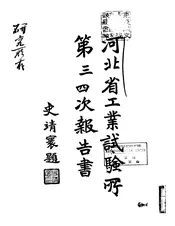 河北省工業試驗所
第三四次報告書
史靖寰題